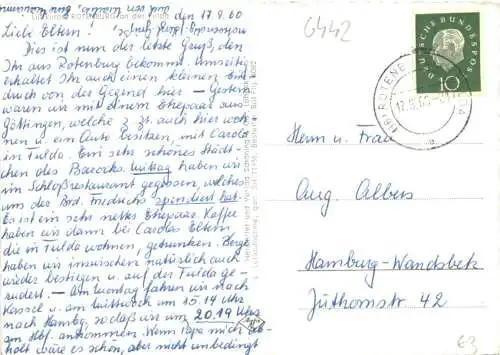 6442
den 17.9.60
Liebe Eltern!
Dies ist nun der letzte Gruß, den
Ihr aus Rotenburg bekommt. Umseitig
erhaltet Ihr auch einen kleinen Ein-
druck von der Gegend hier – Gestern
waren wir mit einem Ehepaar aus
Göttingen, welche z. Zt. auch hier woh-
nen u. ein Auto besitzen, mit Carola
in Fulda. Ein sehr schönes Städt-
chen des Barocks. Mittag haben wir
im Schloßrestaurant gegessen, welches
uns der Brd. Friedrichs spendiert hat.
Es ist ein sehr nettes Ehepaar. Kaffee
haben wir dann bei Carolas Eltern,
die in Fulda wohnen, getrunken. Berge
haben wir inzwischen natürlich auch
wieder bestiegen u. auf der Fulda ge-
rudert. – Am Montag fahren wir nach
Kassel u. am Mittwoch um 15.14 Uhr
nach Hambg, sodaß wir um 20.19 Uhr
am Hbf. ankommen. Wenn Papa mich ab-
holt wäre es schön, aber nicht unbedingt
DEUTSCHE BUNDESPOST
10
Herrn u. Frau
Aug. Albers
Hamburg-Wandsbek
Jüthornstr. 42
63